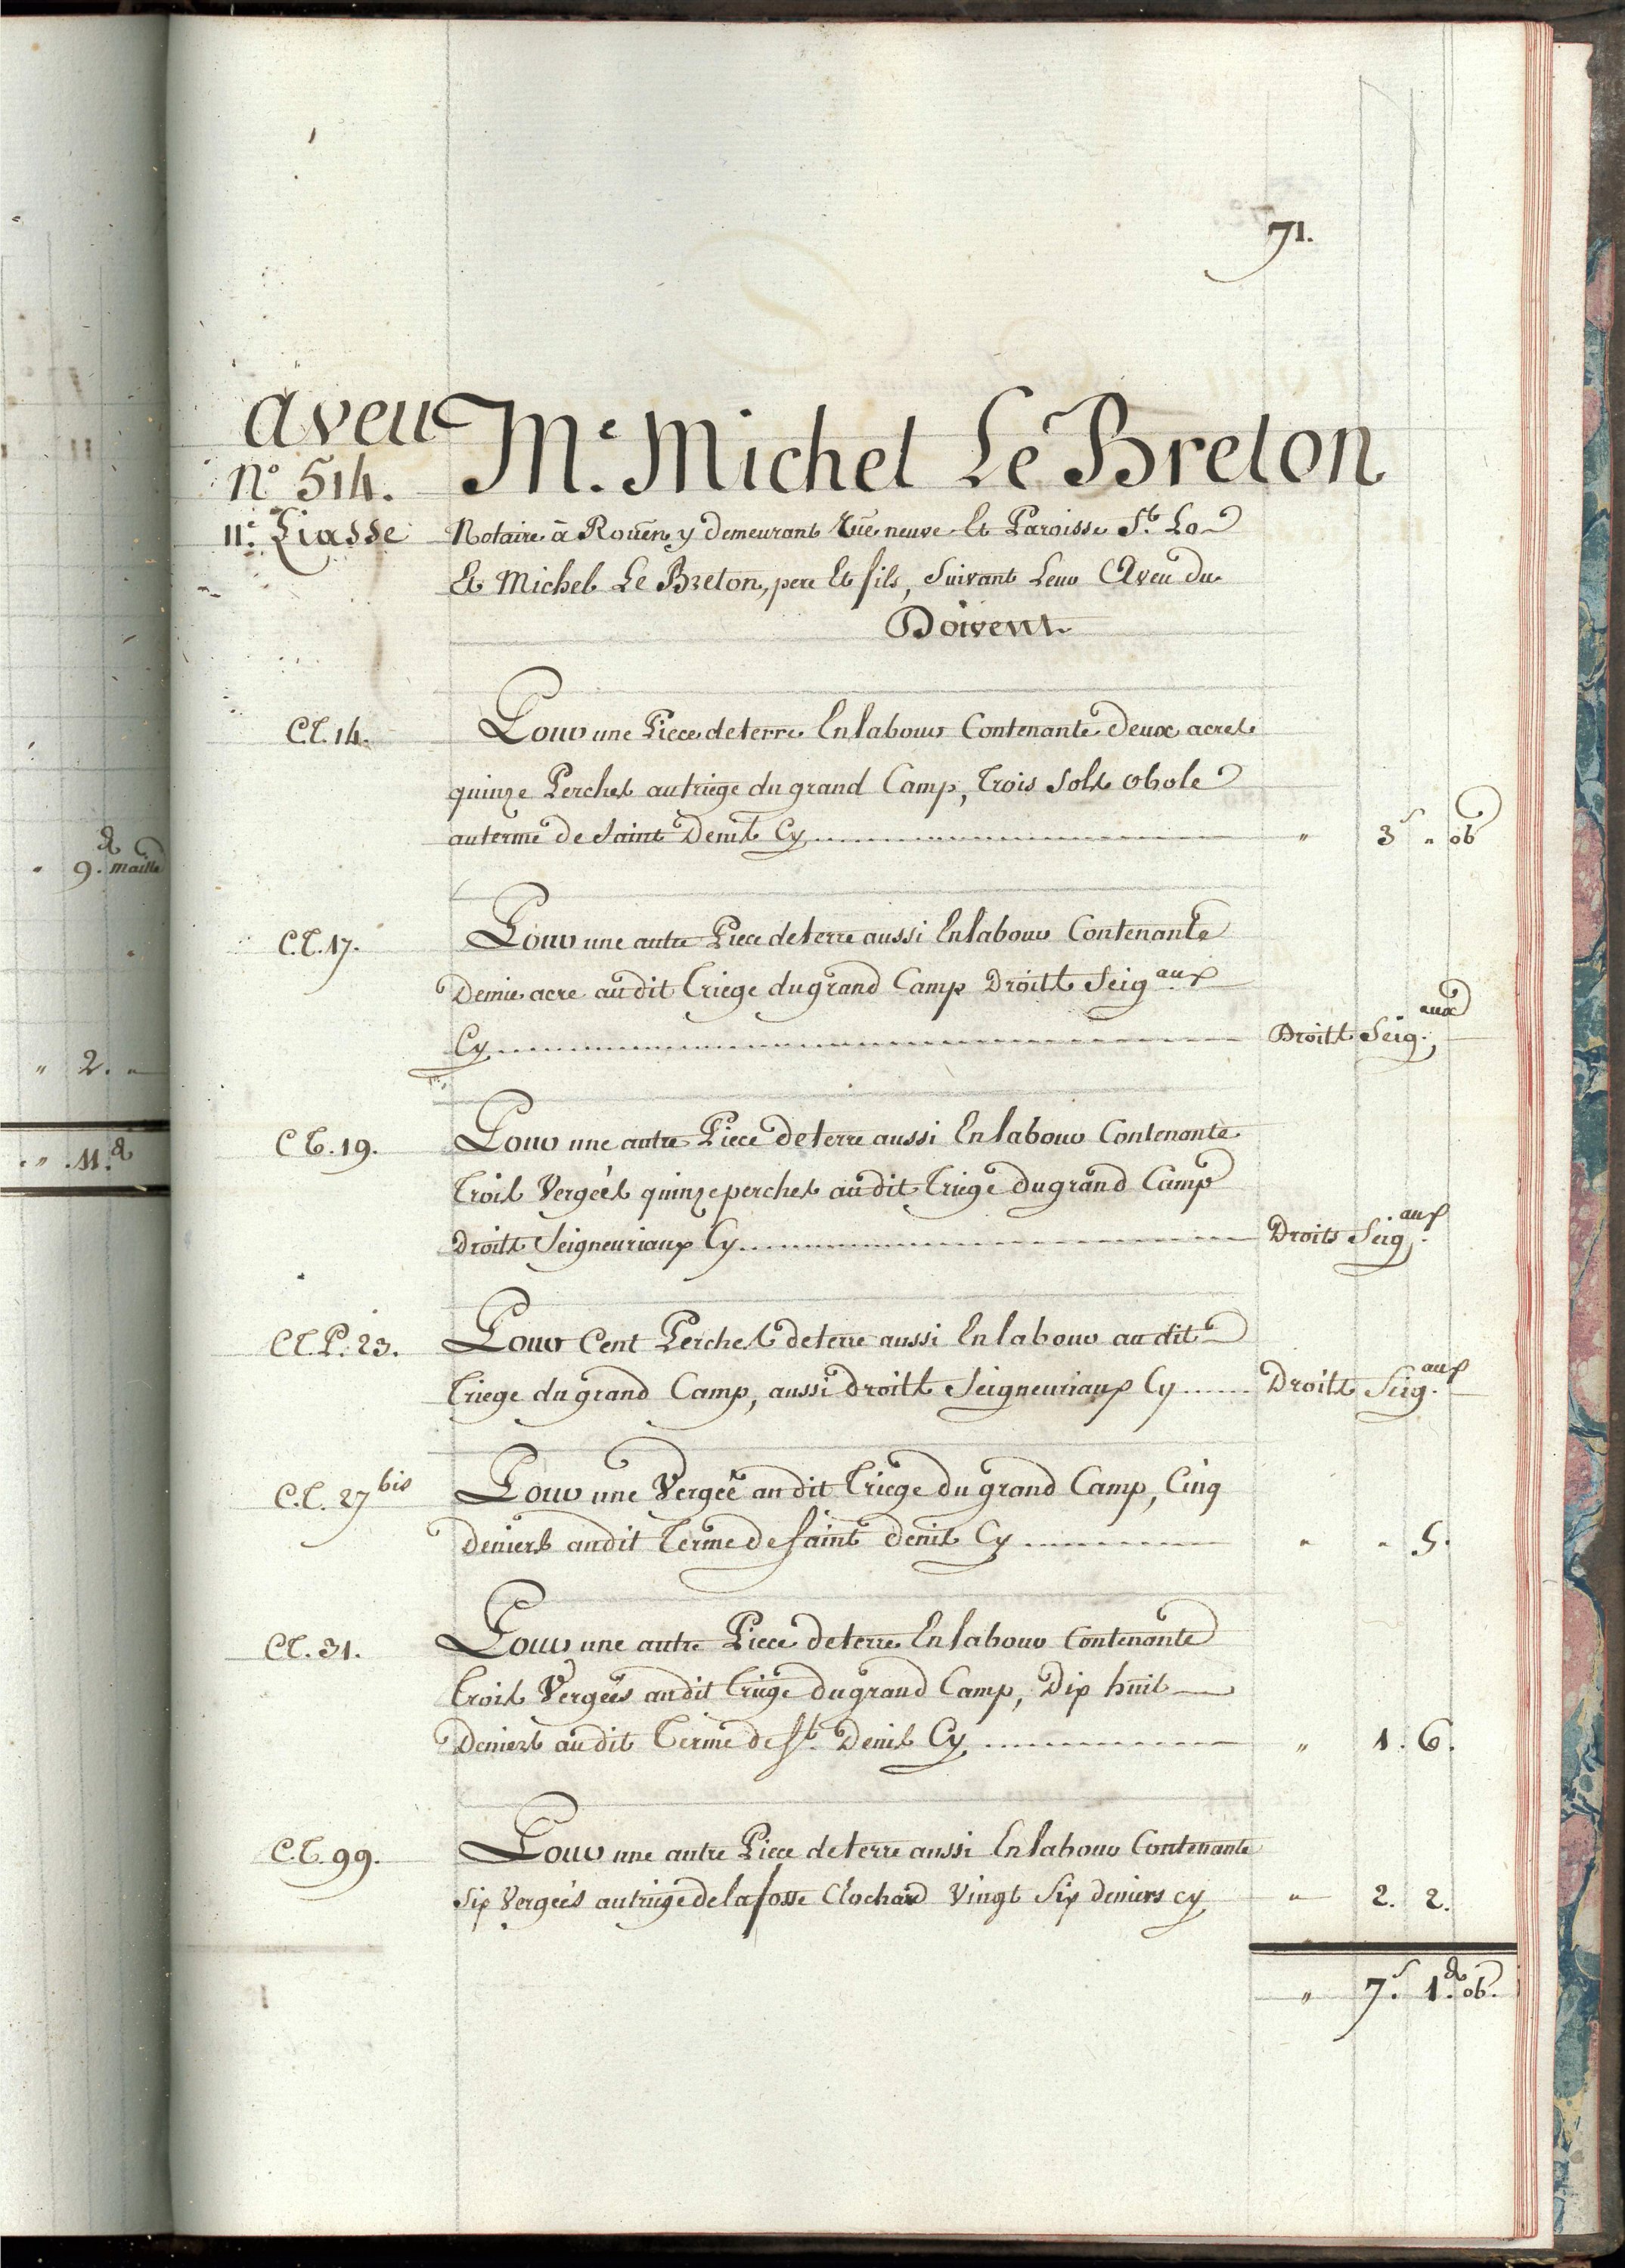 9. d maille
" 2. "
" " 11. d
71.
aveu
n° 514.
11e. Liasse
Me. Michel Le Breton
Notaire à Roüen y Demeurant Rüe neuve Et Paroisse St. Lo
Et Michel Le Breton, pere Et fils, Suivant Leur Aveu du
Doivent
C.T. 14.
Pour une Piece de terre En labour Contenante Deux acres
quinze Perches au triege du grand Camp, Trois Sols obole
au terme de Saint Denis Cy " 3s " ob
C.T. 17.
Pour une autre Piece de terre aussi En labour Contenante
Demie acre au dit Triege du grand Camp Droits Seig.aux
Cy Droits Seig.aux
C T. 19.
Pour une autre Piece de terre aussi En labour Contenante
Trois Vergeés quinze perches au dit Triege du grand Camp
Droits Seigneuriaux Cy Droits Seig.aux
C T. P. 23.
Pour Cent Perches de terre aussi En labour au dit
Triege du grand Camp, aussi droits Seigneuriaux Cy Droits Seig.aux
C.T. 27 bis
Pour une Vergeé au dit Triege du grand Camp, Cinq
Deniers au dit Terme de Saint denis Cy " " 5.
C T. 31.
Pour une autre Piece de terre En labour Contenante
Trois Vergeés au dit Triege du grand Camp, Dix huit
Deniers au dit Terme de St. Denis Cy " 1. 6.
C.T. 99.
Pour une autre Piece de terre aussi En labour Contenante
Six Vergeés au triege de la fosse Clochard Vingt Six deniers cy " 2. 2.
" 7.s 1.d ob.